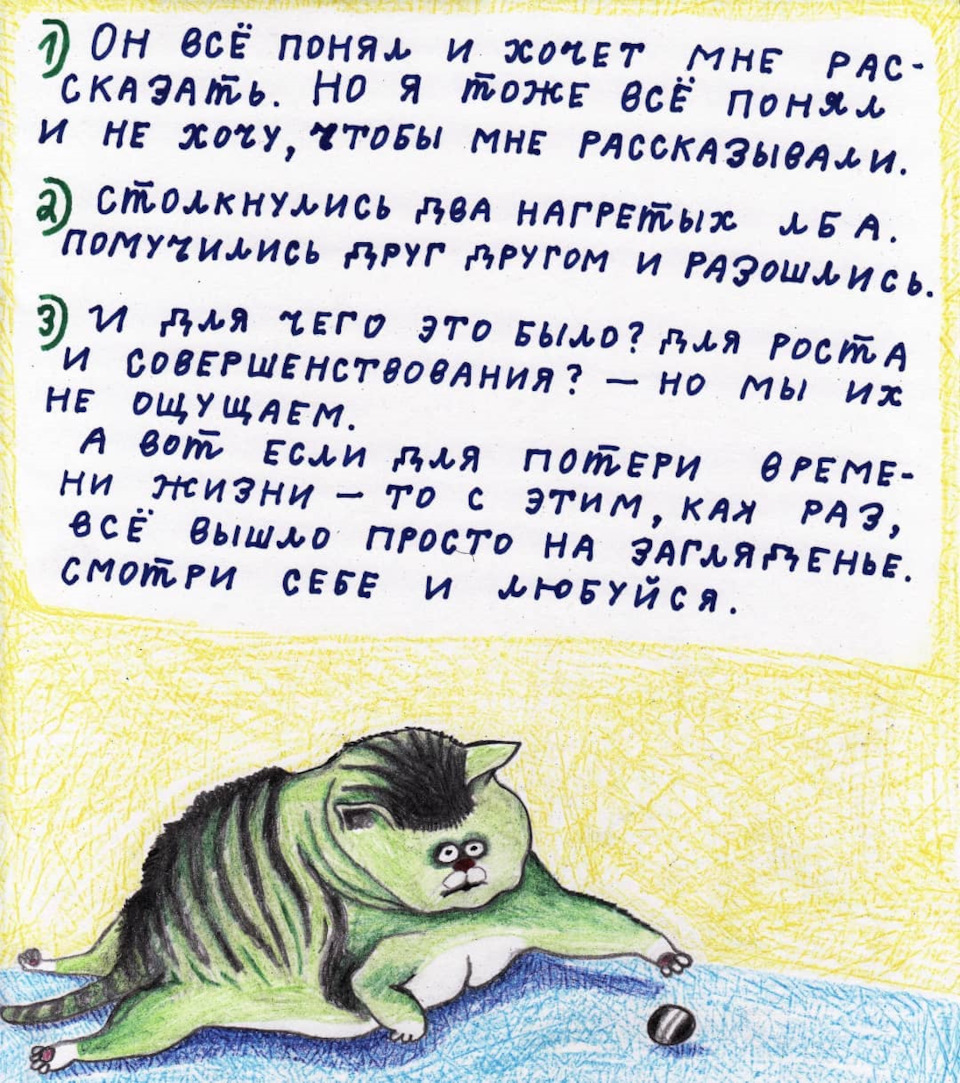 1) Он всё понял и хочет мне рас-
сказать. Но я тоже всё понял
и не хочу, чтобы мне рассказывали.
2) Столкнулись два нагретых лба.
Помучились друг другом и разошлись.
3) И для чего это было? Для роста
и совершенствования? — но мы их
не ощущаем.
А вот если для потери време-
ни жизни — то с этим, как раз,
всё вышло просто на загляденье.
Смотри себе и любуйся.